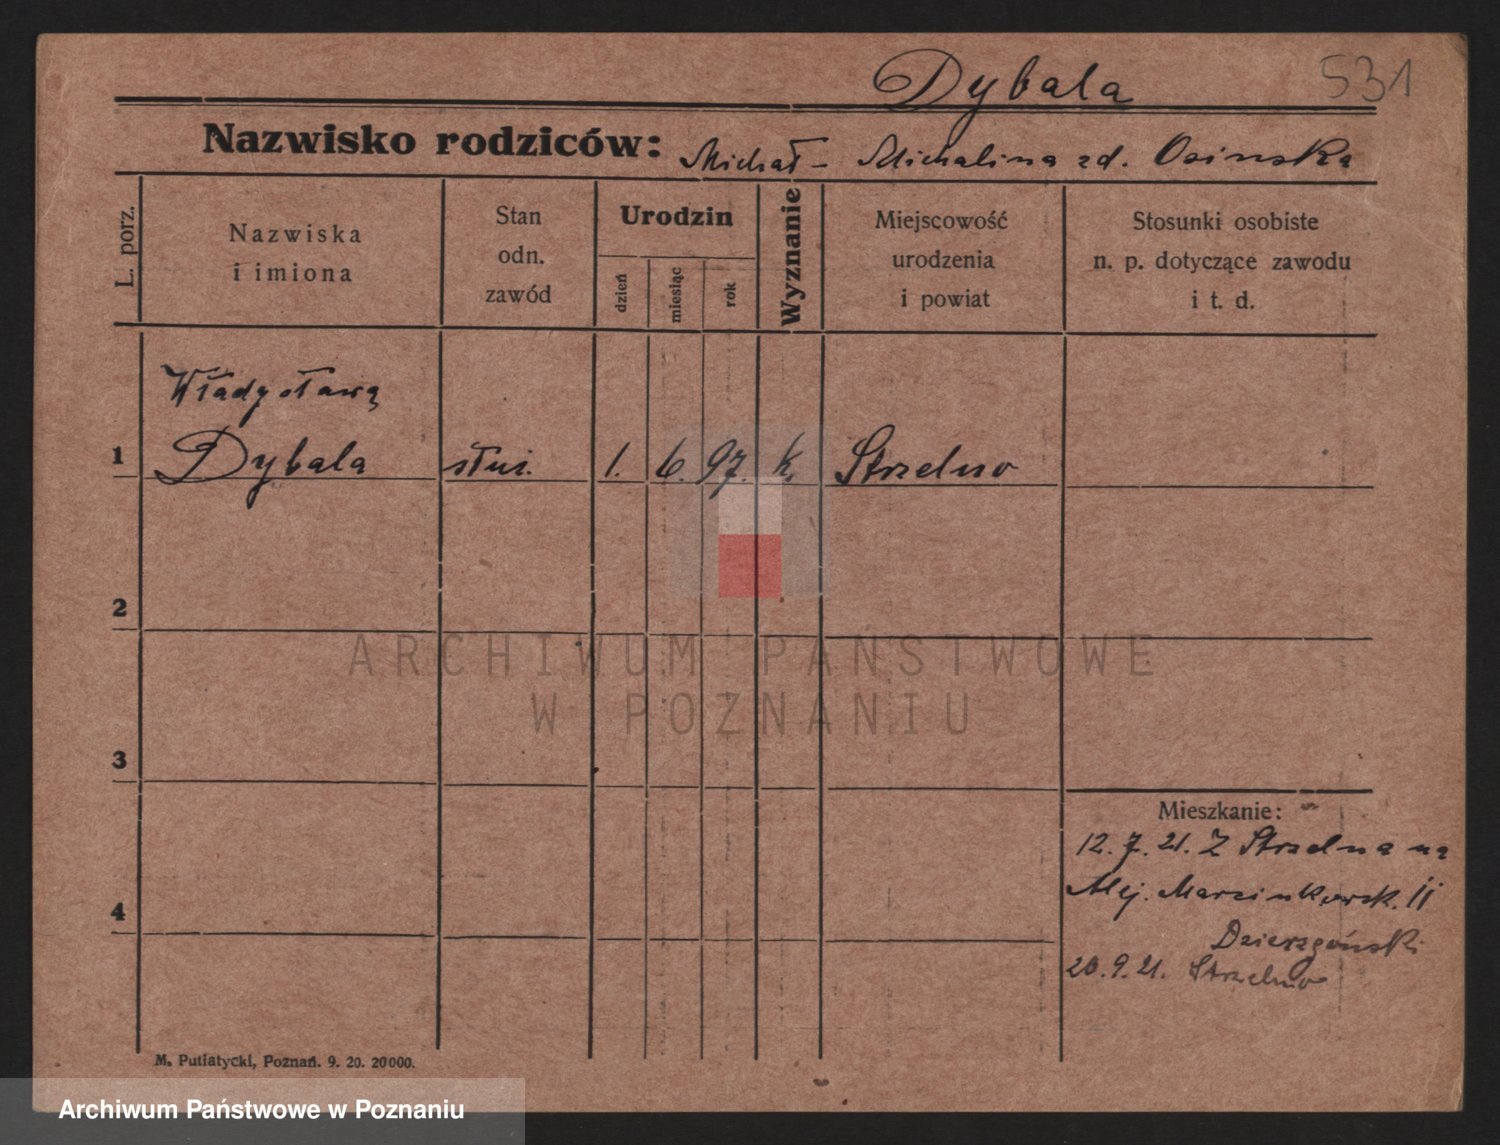 Dybala 531
Nazwisko rodziców: Michał - Michalina zd. Osinska
L. porz.
Nazwiska
i imiona
Stan
odn.
zawód
Urodzin
dzień
miesiąc
rok
Wyznanie
Miejscowość
urodzenia
i powiat
Stosunki osobiste
n. p. dotyczące zawodu
i t. d.
Władysława
1 Dybala służ. 1. 6. 97. k. Strzelno
2
ARCHIWUM PAŃSTWOWE
W POZNANIU
3
Mieszkanie:
12. 7. 21. Z Strzelna na
Alej. Marcinkowsk. 11
4
Dzierzgoński
20. 9. 21. Strzelno
M. Putiatycki, Poznań. 9. 20. 20000.
Archiwum Państwowe w Poznaniu